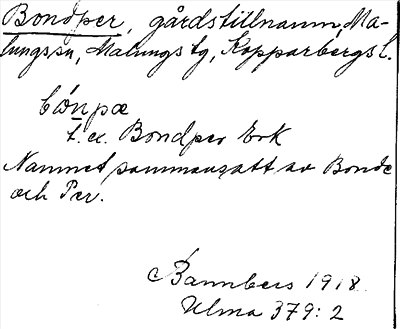 Bondper, gårdstillnamn, Ma-
lungs sn, Malungs tg, Kopparbergs l.
t. ex. Bondper Erk
Namnet sammansatt av Bonde
och Per.
Bannbers 1918
Ulma 379:2